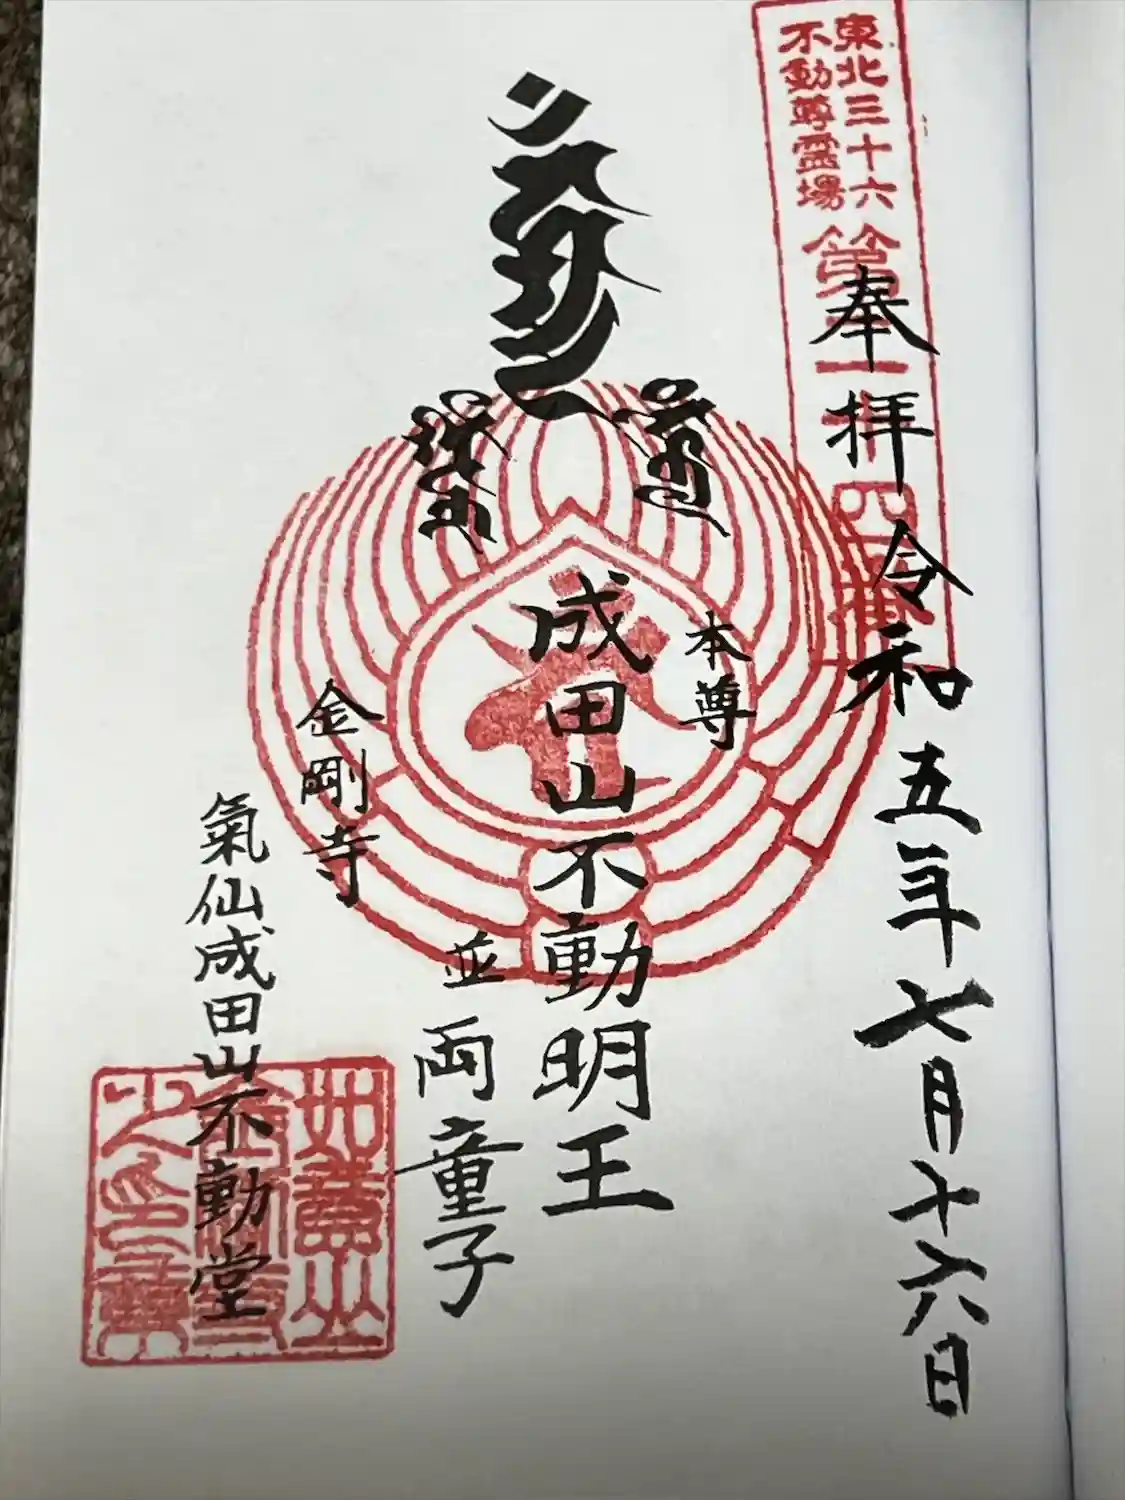 東北三十六
不動尊霊場
第二十四番
奉拝
令和五年七月十六日
本尊
成田山不動明王
並両童子
金剛寺
氣仙成田山不動堂
如意山
金剛寺